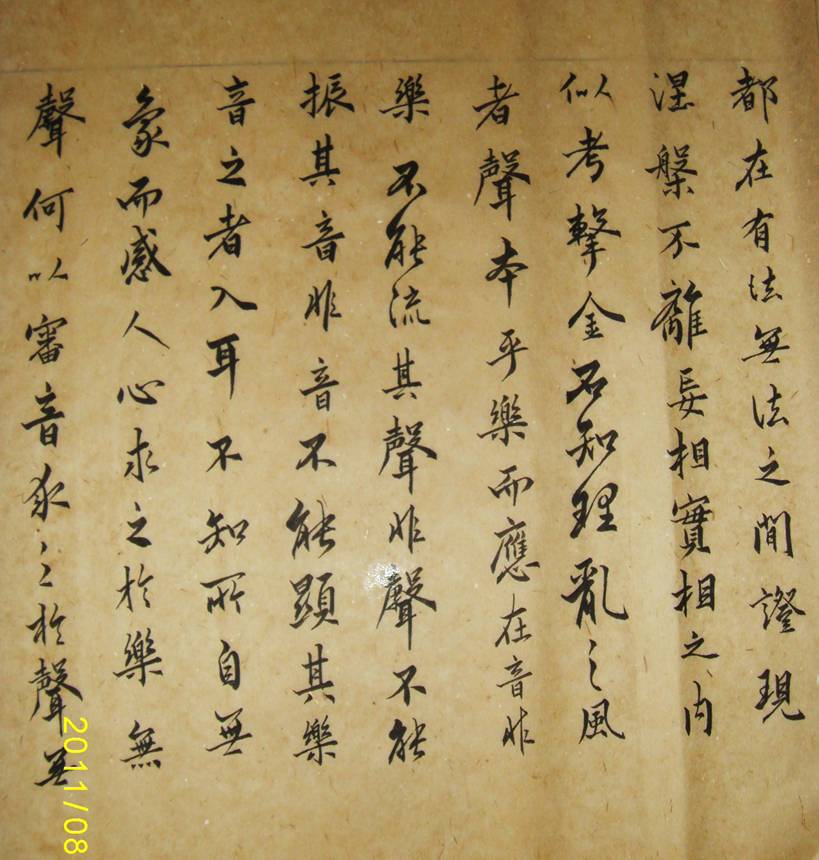 都在有法無法之間證現
涅槃不離妄相實相之內
似考擊金石知理亂之風
者聲本乎樂而應在音非
樂不能流其聲非聲不能
振其音非音不能顯其樂
音之者入耳不知所自無
象而感人心求之於樂無
聲何以審音求之於聲無
2011/08